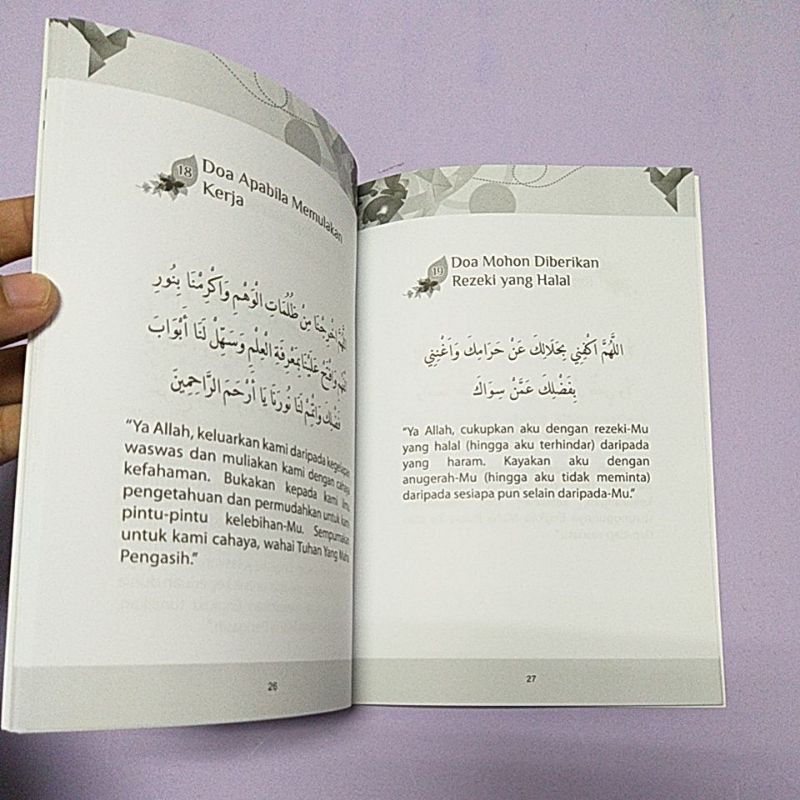 18
Doa Apabila Memulakan
Kerja
اللَّهُمَّ اَخْرِجْنَا مِنْ ظُلُمَاتِ الْوَهْمِ وَاَكْرِمْنَا بِنُورِ
الْفَهْمِ وَافْتَحْ عَلَيْنَا بِمَعْرِفَةِ الْعِلْمِ وَسَهِّلْ لَنَا أَبْوَابَ
فَضْلِكَ وَاتْمِمْ لَنَا نُورَنَا يَا أَرْحَمَ الرَّاحِمِينَ
“Ya Allah, keluarkan kami daripada kegelapan
waswas dan muliakan kami dengan cahaya
kefahaman. Bukakan kepada kami ilmu
pengetahuan dan permudahkan untuk kami
pintu-pintu kelebihan-Mu. Sempurnakan
untuk kami cahaya, wahai Tuhan Yang Maha
Pengasih.”
26
19
Doa Mohon Diberikan
Rezeki yang Halal
اللَّهُمَّ اكْفِنِي بِحَلَالِكَ عَنْ حَرَامِكَ وَاَغْنِنِي
بِفَضْلِكَ عَمَّنْ سِوَاكَ
“Ya Allah, cukupkan aku dengan rezeki-Mu
yang halal (hingga aku terhindar) daripada
yang haram. Kayakan aku dengan
anugerah-Mu (hingga aku tidak meminta)
daripada sesiapa pun selain daripada-Mu.”
27